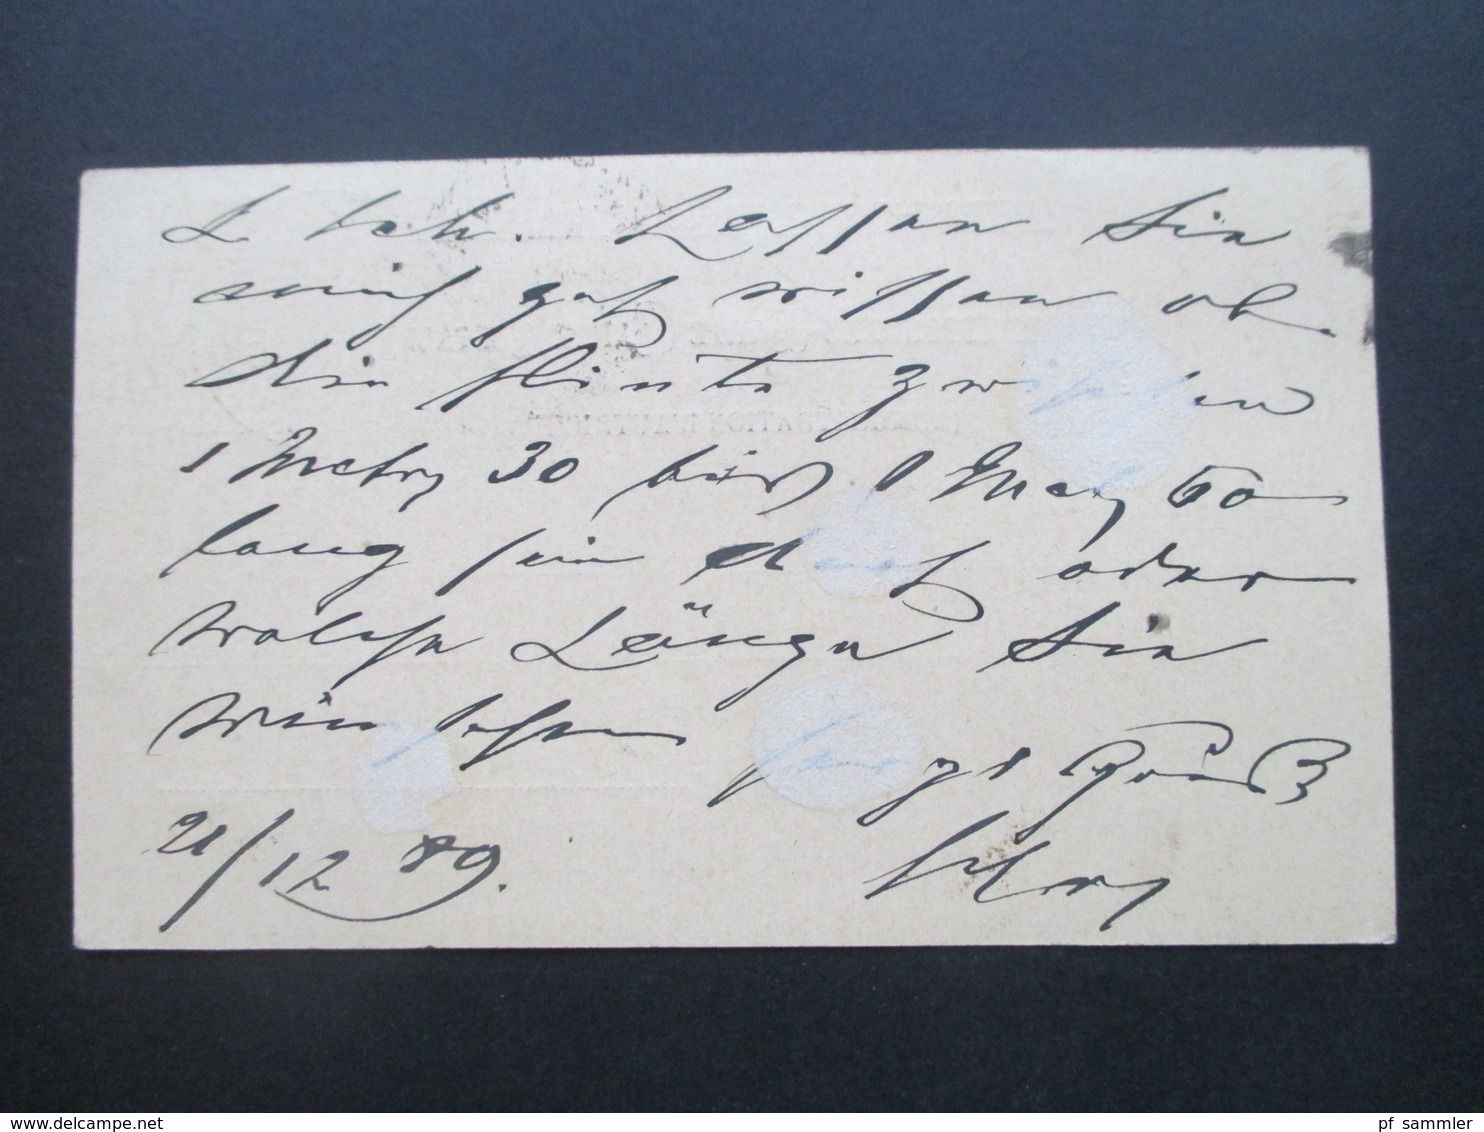 Lassen Sie
mich gefl wissen ob
die Flinte zwischen
1 Metr 30 bis 1 Metr 60
lang sein darf oder
welche Länge Sie
wünschen
Gruß
21/12 89.
delcampe.net
pf_sammler